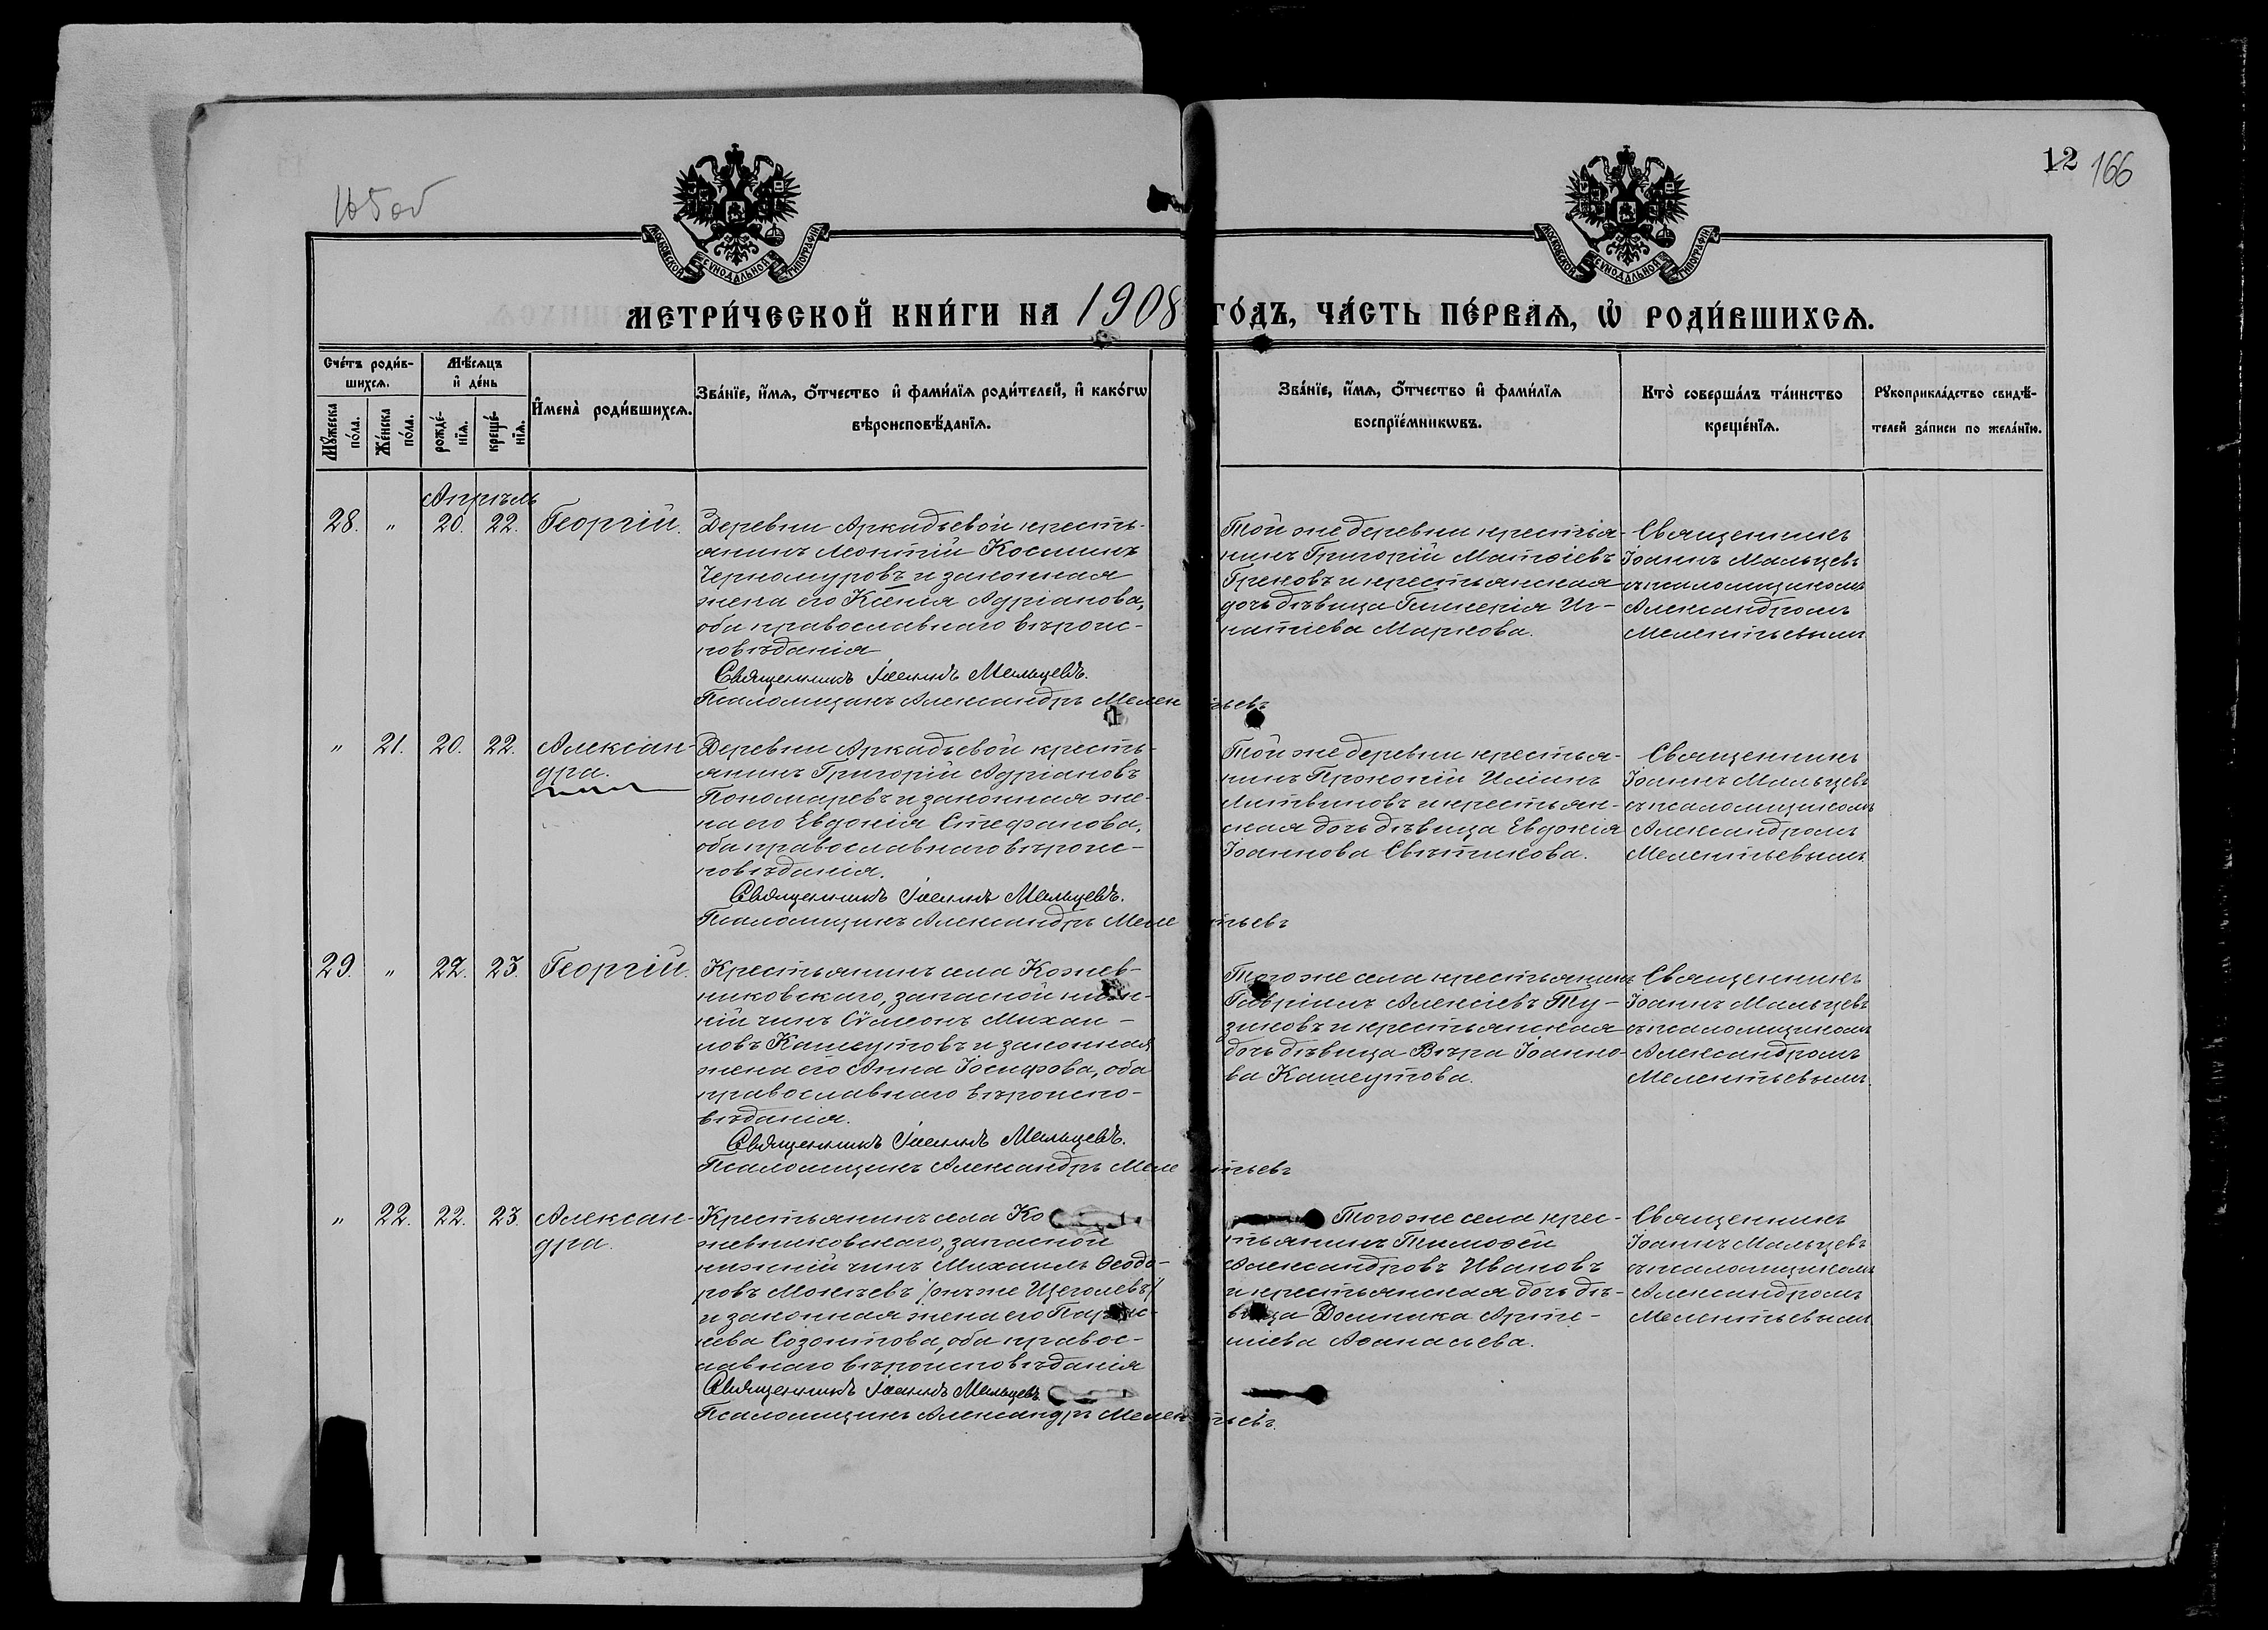 165об
12 166
МОСКОВСКОЙ СѴНОДАЛЬНОЙ ТИПОГРАФІИ
МОСКОВСКОЙ СѴНОДАЛЬНОЙ ТИПОГРАФІИ
МЕТРИ́ЧЕСКОЙ КНИ́ГИ НА 1908 ГО́ДЪ, ЧА́СТЬ ПЕ́РВАЯ, Ѡ҆ РОДИ́ВШИХСЯ.
Сче́тъ роди́в-
шихся.
Мѣ́сяцъ
и҆ де́нь
Мꙋ́жеска по́ла.
Же́нска по́ла.
рожде́-
нїя.
креще́-
нїя.
И҆мена̀ роди́вшихся.
Зва́нїе, и҆́мя, ѻ҆́тчество и҆ фами́лїя роди́телей, и҆ како́гѡ
вѣроисповѣ́данїя.
Зва́нїе, и҆́мя, ѻ҆́тчество и҆ фами́лїя
воспрїе́мникѡвъ.
Кто̀ соверша́лъ та́инство
креще́нїя.
Рꙋкоприкла́дство свидѣ́-
телей за́писи по жела́нїю.
Апрѣль
28. " 20. 22. Георгій.
Деревни Аркадьевой кресть-
янинъ Леонтій Косминъ
Черномуровъ и законная
жена его Ксенія Адріанова,
оба православнаго вѣроис-
повѣданія
Священникъ Іоаннъ Мальцевъ.
Псаломщикъ Александръ Мелентьевъ
Той же деревни крестья-
нинъ Григорій Матѳіевъ
Грековъ и крестьянская
дочь дѣвица Гликерія Иг-
натіева Маркова.
Священникъ
Іоаннъ Мальцевъ
съ псаломщикомъ
Александромъ
Мелентьевымъ
" 21. 20. 22. Алексан-
дра.
Деревни Аркадьевой кресть-
янинъ Григорій Адріановъ
Пономаревъ и законная же-
на его Евдокія Стефанова,
оба православнаго вѣроис-
повѣданія.
Священникъ Іоаннъ Мальцевъ.
Псаломщикъ Александръ Мелентьевъ
Той же деревни крестья-
нинъ Прокопій Иліинъ
Литвиновъ и крестьян-
ская дочь дѣвица Евдокія
Іоаннова Свѣтликова.
Священникъ
Іоаннъ Мальцевъ
съ псаломщикомъ
Александромъ
Мелентьевымъ
29. " 22. 23. Георгій.
Крестьянинъ села Кожев-
никовскаго, запасной ниж-
ній чинъ Сѵмеонъ Михаи-
ловъ Кашеутовъ и законная
жена его Анна Іосифова, оба
православнаго вѣроиспо-
вѣданія.
Священникъ Іоаннъ Мальцевъ.
Псаломщикъ Александръ Мелентьевъ
Того же села крестьянинъ
Гавріилъ Алексіевъ Ту-
зиковъ и крестьянская
дочь дѣвица Вѣра Іоанно-
ва Кашеутова.
Священникъ
Іоаннъ Мальцевъ
съ псаломщикомъ
Александромъ
Мелентьевымъ.
" 22. 22. 23. Алексан-
дра.
Крестьянинъ села Ко
жевниковскаго, запасной
нижній чинъ Михаилъ Ѳеодо-
ровъ Мокѣевъ /онъ же Щеголевъ/
и законная жена его
Созонтова, оба правос-
лавнаго вѣроисповѣданія
Священникъ Іоаннъ Мальцевъ
Псаломщикъ Александръ Мелентьевъ.
Того же села крес-
тьянинъ Тимоѳей
Александровъ Ивановъ
и крестьянская дочь дѣ-
вица Домника Арте-
міева Аѳанасьева.
Священникъ
Іоаннъ Мальцевъ
съ псаломщикомъ
Александромъ
Мелентьевымъ